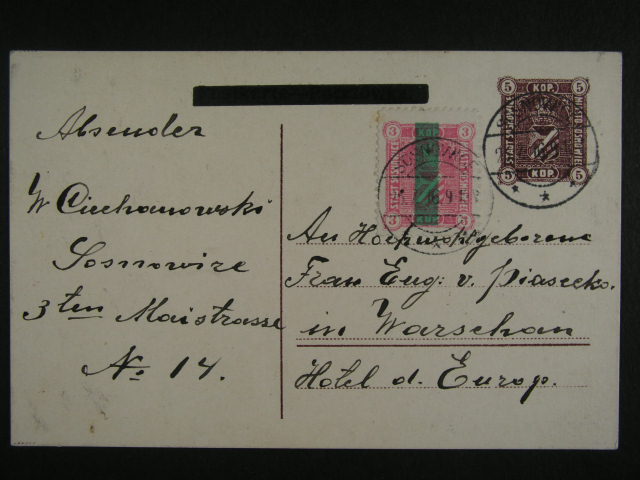 Absender
W Ciechanowski
Sosnowice
3ten Maistrasse
No 14.
3 KOP 3
3 KOP 3
5 KOP. 5
STADT SOSNOWICE
5 KOP. 5
An Hochwohlgeborene
Frau Eug: v. Piasecka.
in Warschau
Hotel d. Europ.